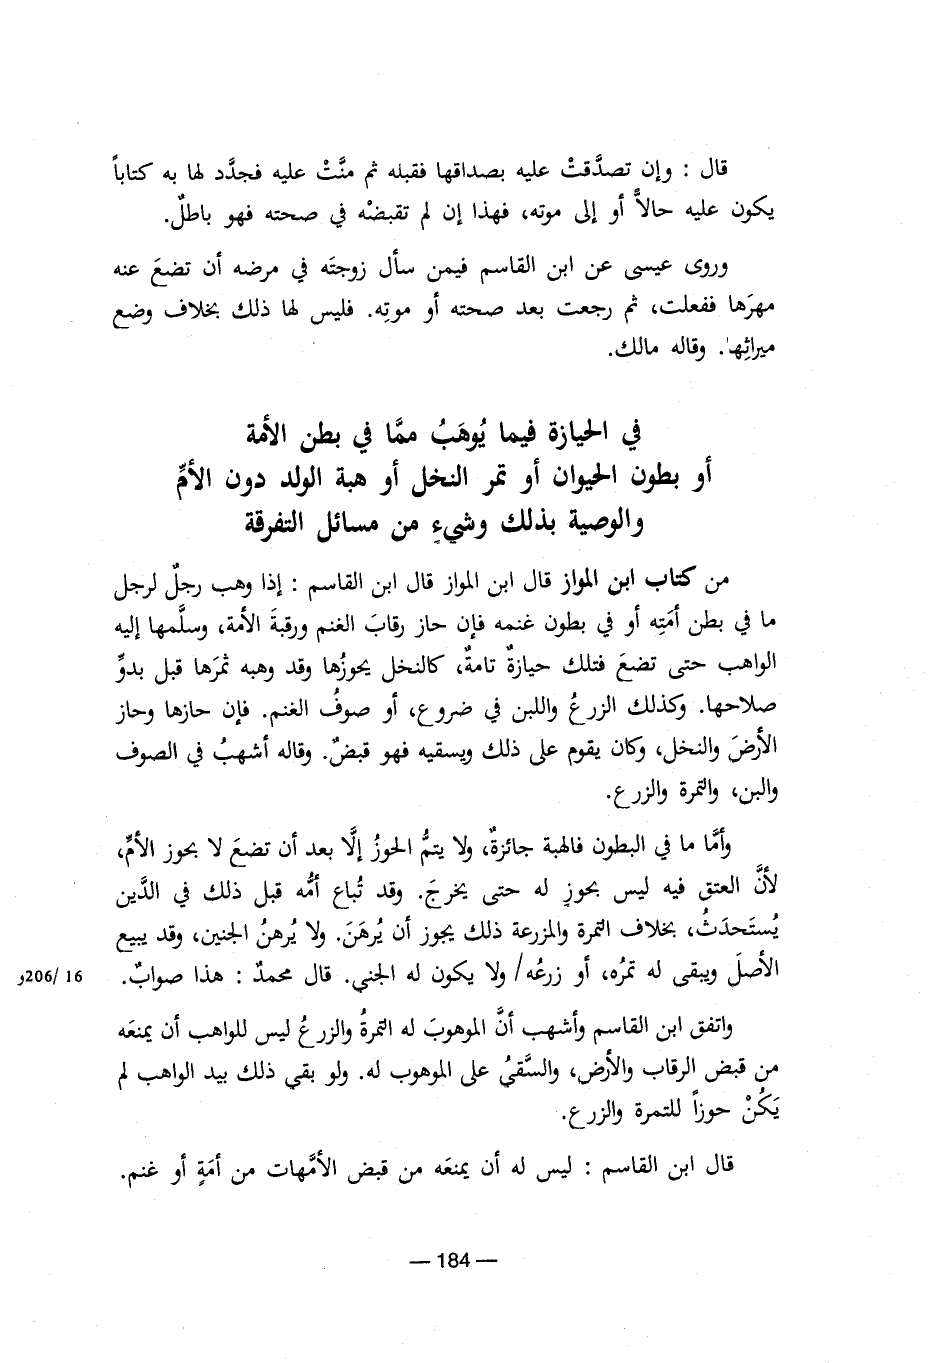 قال : وإن تصدَّقتْ عليه بصداقها فقبله ثم منَّتْ عليه فجدَّد لها به كتاباً
يكون عليه حالاًّ أو إلى موته، فهذا إن لم تقبضْه في صحته فهو باطلٌ.
وروى عيسى عن ابن القاسم فيمن سأل زوجتَه في مرضه أن تضعَ عنه
مهرَها ففعلت، ثم رجعت بعد صحته أو موتِه. فليس لها ذلك بخلاف وضع
ميراثِها. وقاله مالك.
في الحيازة فيما يُوهَبُ ممَّا في بطن الأمة
أو بطون الحيوان أو تمر النخل أو هبة الولد دون الأمِّ
والوصية بذلك وشيءٍ من مسائل التفرقة
من كتاب ابن المواز قال ابن المواز قال ابن القاسم : إذا وهب رجلٌ لرجل
ما في بطن أمَتِه أو في بطون غنمه فإن حاز رقابَ الغنم ورقبةَ الأمة، وسلَّمها إليه
الواهب حتى تضعَ فتلك حيازةٌ تامةٌ، كالنخل يحوزُها وقد وهبه ثمرَها قبل بدوِّ
صلاحها. وكذلك الزرعُ واللبن في ضروع، أو صوفُ الغنم. فإن حازها وحاز
الأرضَ والنخل، وكان يقوم على ذلك ويسقيه فهو قبضٌ. وقاله أشهبُ في الصوف
والبن، والثمرة والزرع.
وأمَّا ما في البطون فالهبة جائزةٌ، ولا يتمُّ الحوزُ إلَّا بعد أن تضعَ لا بحوز الأمِّ،
لأنَّ العتق فيه ليس بحوزٍ له حتى يخرجَ. وقد تُباع أمُّه قبل ذلك في الدَّين
يُستَحدَثُ، بخلاف الثمرة والمزرعة ذلك يجوز أن يُرهَنَ. ولا يُرهنُ الجنين، وقد يبيع
الأصلَ ويبقى له تمرُه، أو زرعُه/ ولا يكون له الجني. قال محمدٌ : هذا صوابٌ.
16 /206و
واتفق ابن القاسم وأشهب أنَّ الموهوبَ له الثمرةُ والزرعُ ليس للواهب أن يمنعَه
من قبض الرقاب والأرض، والسَّقيُ على الموهوب له. ولو بقي ذلك بيد الواهب لم
يَكُنْ حوزاً للتمرة والزرع.
قال ابن القاسم : ليس له أن يمنعَه من قبض الأمَّهات من أمَةٍ أو غنم.
— 184 —